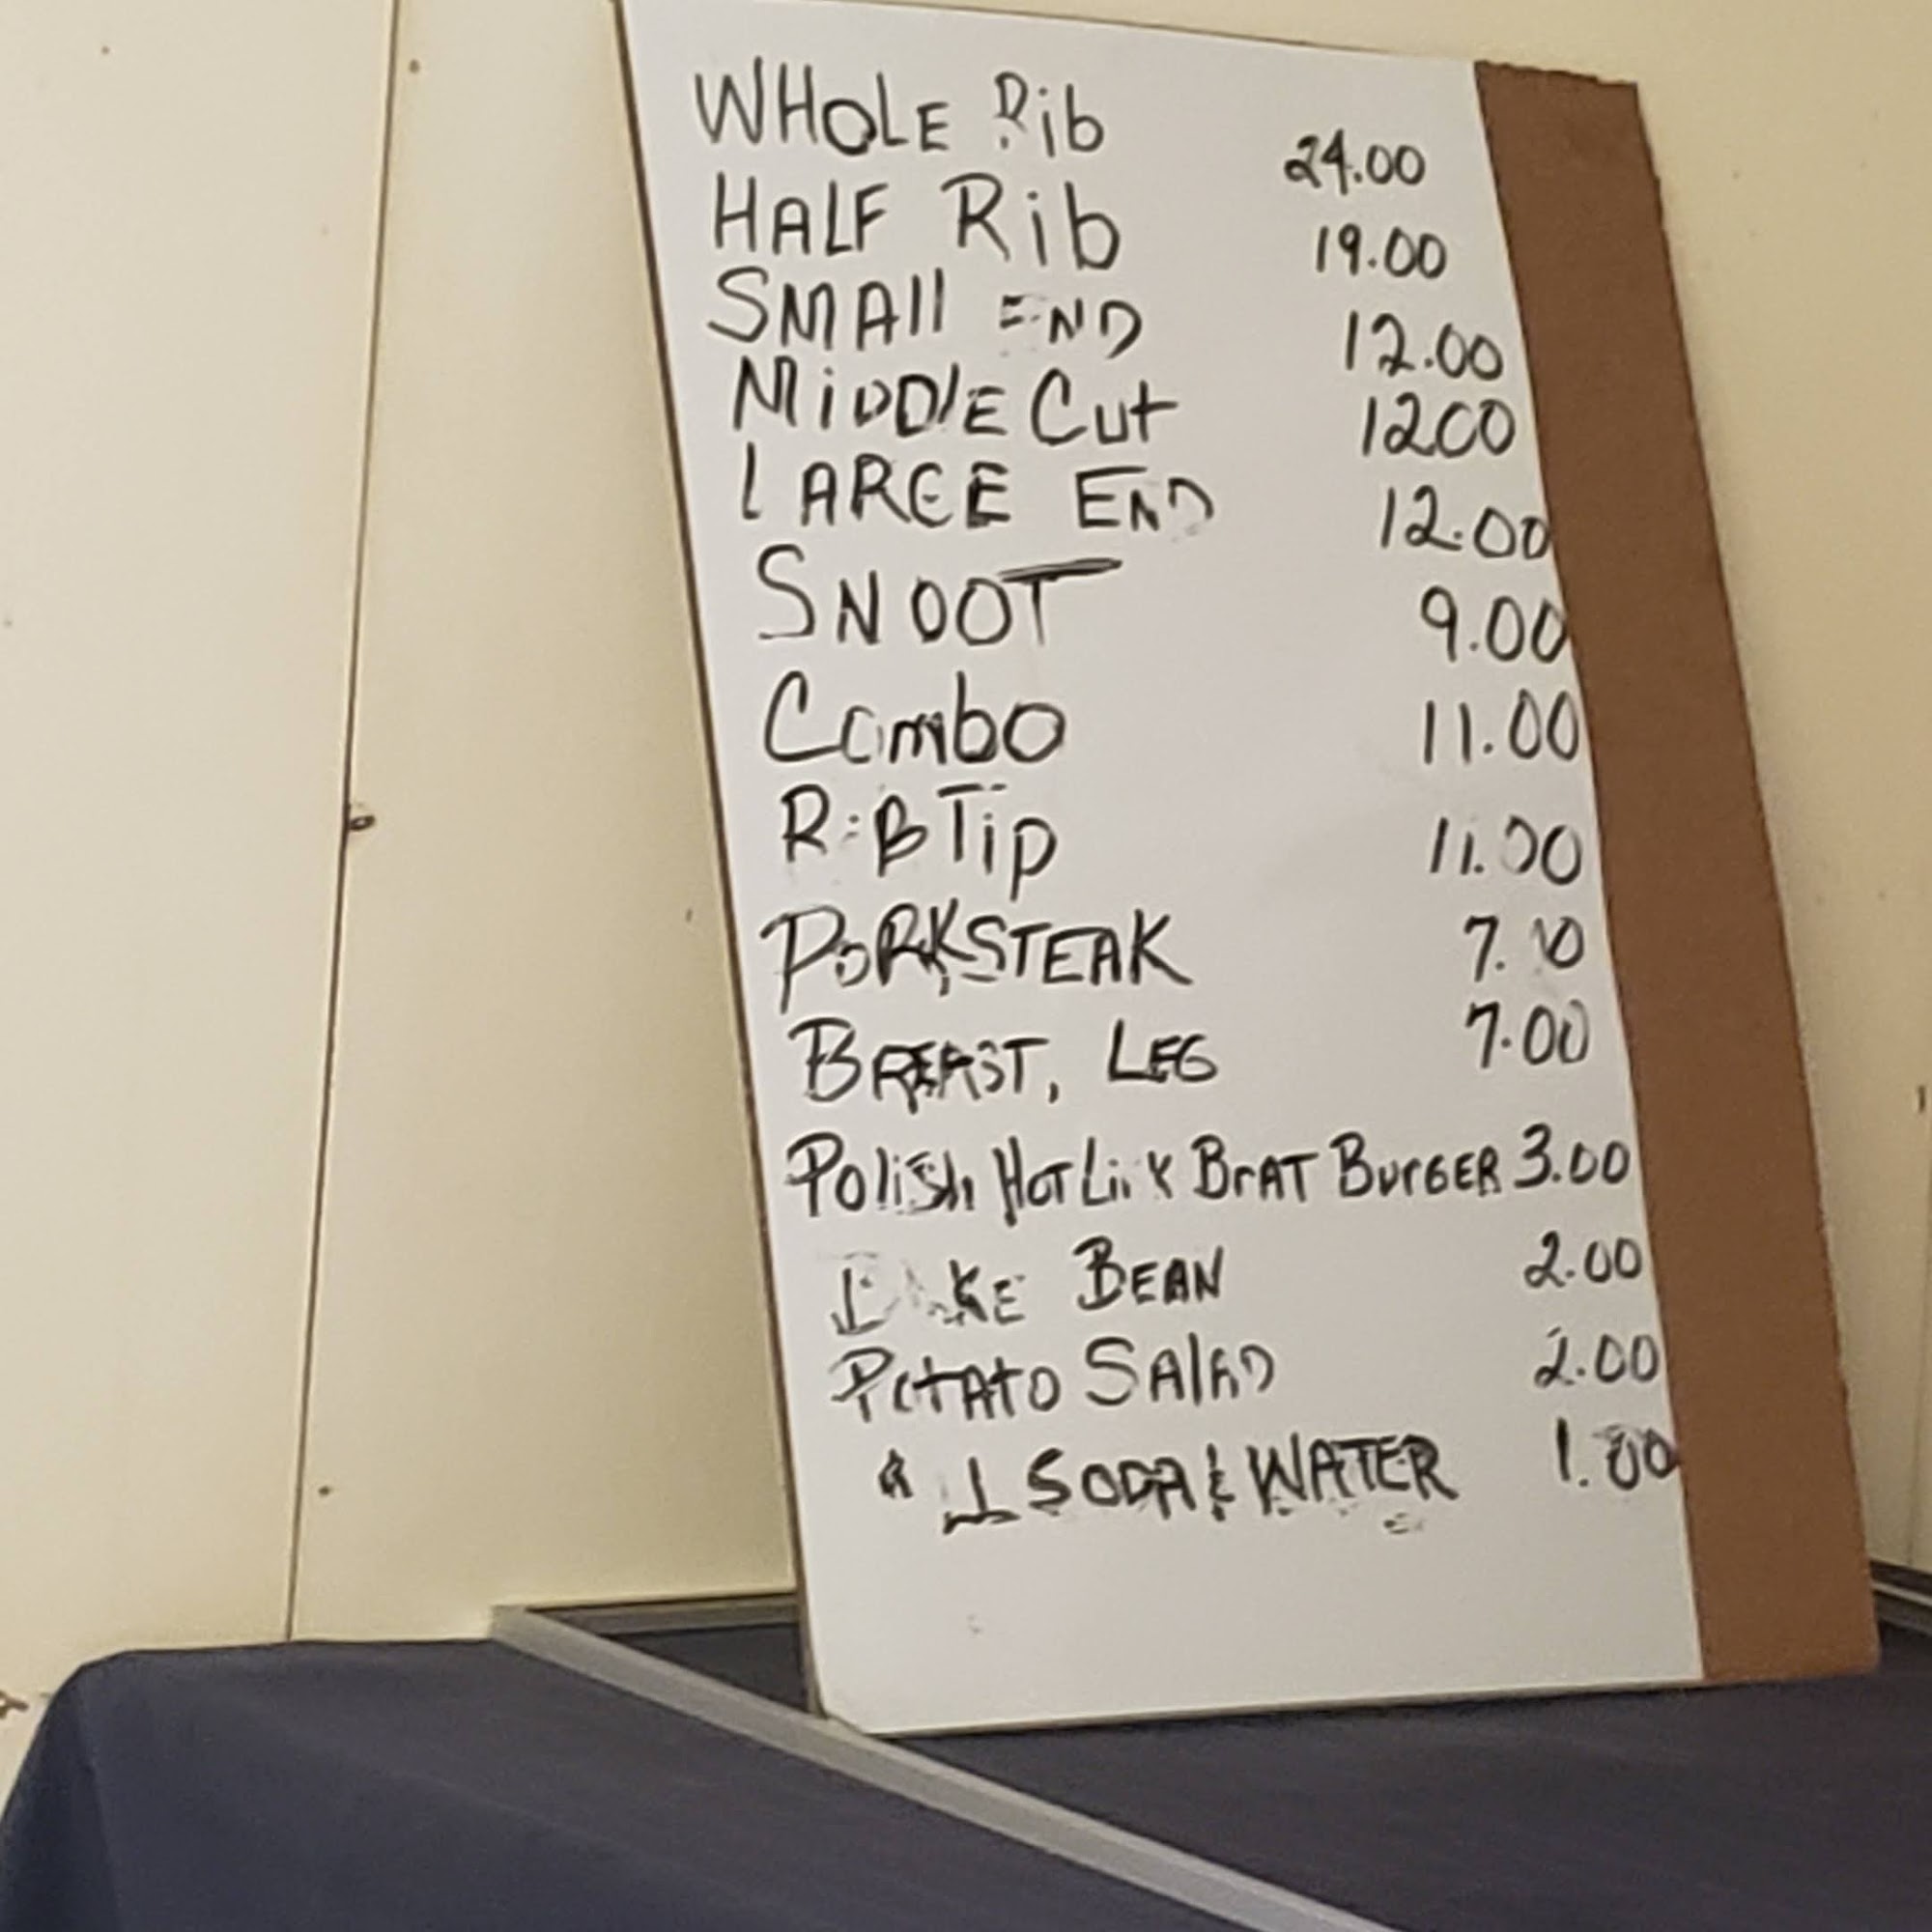 WHOLE Rib 24.00
HALF Rib 19.00
SMAll END 12.00
MiDDlE Cut 1200
LARGE END 12.00
SNOOT 9.00
Combo 11.00
RiB Tip 11.00
PORKSTEAK 7.00
BREAST, LEG 7.00
Polish HOT Link BrAT BurGER 3.00
BAKE BEAN 2.00
PotAtO SAlAD 2.00
SODA & WATER 1.00